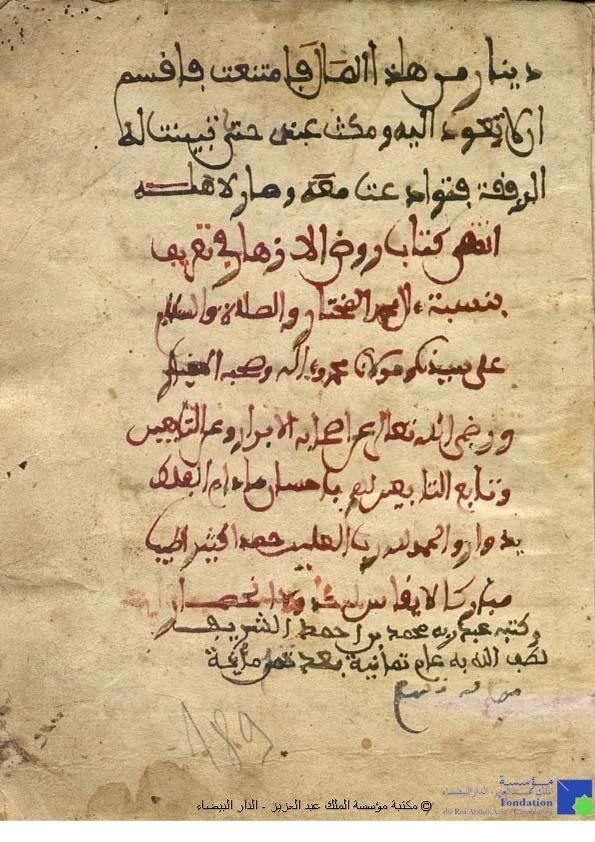 دينار من هاذا المال فامتنعت فاقسم
ان لا تعود اليه ومكث عندي حتى تبينت له
الرفقة فتوادعنا معه وصار لاهله
انتهى كتاب روض الازهار في تعريف
بنسبة ءال محمد المختار والصلاة والسلام
على سيدنا ومولانا محمد وءاله وصحبه
ورضي الله تعالى عن اصحابه الابرار وعن التابعين
وتابع التابعين لهم باحسان ما دام الفلك
يدوار والحمد لله رب العلمين حمدا كثيرا طيبا
مباركا لا يقاس له ولا انحصار
وكتبه عبد ربه محمد بن احمد الشريف
لطف الله به عام ثمانية بعد مائة
189
مؤسسة
الملك عبد العزيز - الدار البيضاء
Fondation
du Roi Abdul-Aziz - Casablanca
© مكتبة مؤسسة الملك عبد العزيز - الدار البيضاء